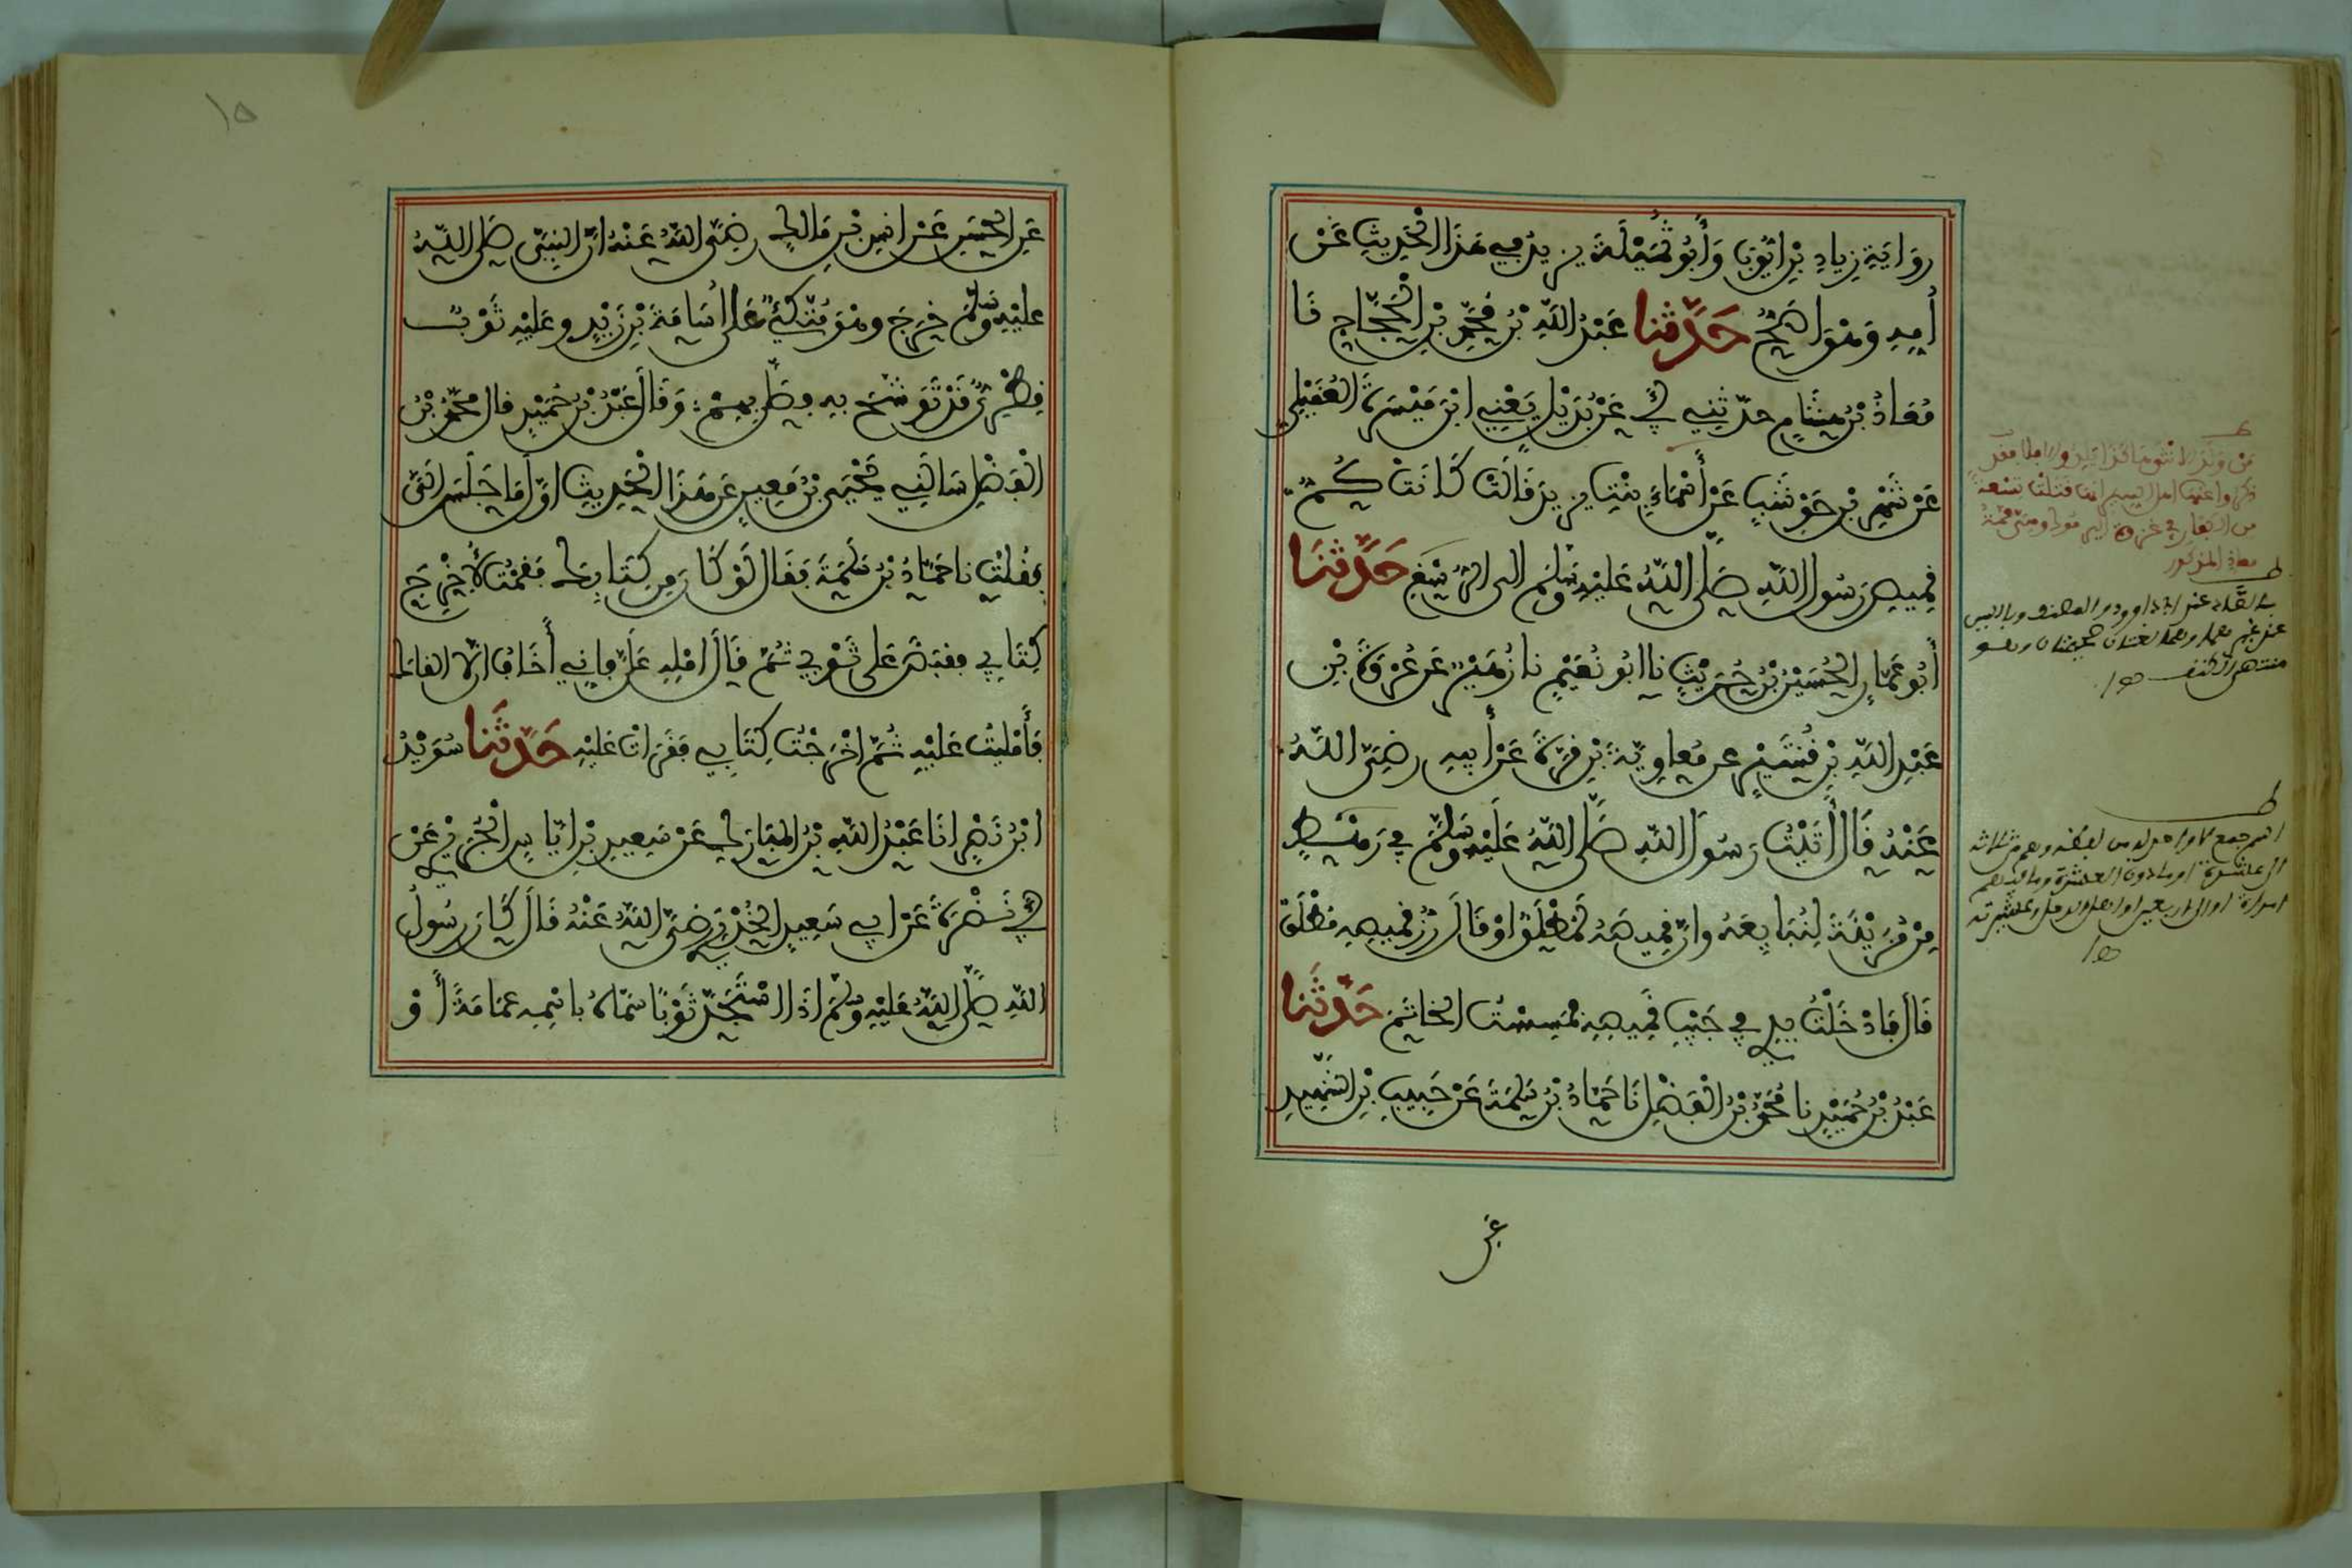 رِوَايَةِ زِيَادِ بْنِ أَيُّوبَ وَأَبُو ثُمَيْلَةَ يزيدُ في هَذَا الْحَدِيثِ عَنْ
أُمِّهِ وَهْوَ أَصَحُّ حَدَّثنا عَبْدُ اللّهِ بْنُ مُحَمّدِ بْنِ الْحَجَّاجِ نَا
مُعَاذُ بْنُ هِشَامٍ حدّثني أَبِي عَنْ بُدَيْلٍ يَعْنِي ابْنَ مَيْسَرَةَ الْعُقَيْلِي
عَنْ شَهْرِ بْنِ حَوْشَبٍ عَنْ أَسْمَاءَ بِنْتِ يزيدَ قَالَتْ كَانَتْ كُمُّ
قَمِيصِ رَسُولِ اللّهِ صَلَّى اللّهُ عَلَيْهِ وَسَلَّمَ إلى الرُّسْغِ حَدَّثَنَا
أَبُو عَمَّارٍ الْحُسَيْنُ بْنُ حُرَيْثٍ نا ابُو نُعَيْمٍ نا زُهَيْرٌ عَنْ عُرْوَةَ بْنِ
عَبْدِ اللّهِ بْنِ قُشَيْرٍ عن مُعاوِيَةَ بْنِ قُرَّةَ عَنْ أَبِيهِ رضيَ اللّهُ
عَنْهُ قَالَ أَتَيْتُ رَسُولَ اللّهِ صَلَّى اللّهُ عَلَيْهِ وَسَلَّمَ فِي رَهْطٍ
مِنْ مُزَيْنَةَ لِنُبَايِعَهُ وإنّ قَمِيصَهُ لَمُطْلَقٌ اوْ قَالَ زِرُّ قَمِيصِهِ مُطْلَقٌ
قَالَ فَادْخَلْتُ يدي في جَيْبِ قَمِيصِهِ فَمَسِسْتُ الخاتَمَ حَدَّثَنا
عَبْدُ بْنُ حُمَيْدٍ نا مُحَمّدُ بْنُ الْفَضْلِ نَا حَمَّادُ بْنُ سَلَمَةَ عَنْ حَبِيبِ بْنِ الشَّهِيدِ
عن
١٥
عَنِ الْحَسَنِ عَنْ انسِ بْنِ مَالِكٍ رضيَ اللّهُ عَنْهُ انّ النبيّ صَلّى اللّهُ
عليْهِ وَسَلَّمَ خَرَجَ وهْوَ مُتَّكِئٌ عَلَى أُسَامَةَ بْنِ زَيْدٍ وعَلَيْهِ ثَوْبٌ
قِطْرِيٌّ قَدْ تَوَشَّحَ بِهِ فصَلَّى بِهِمْ وَقَالَ عَبْدُ بْنُ حُمَيْدٍ قال مُحَمَّدُ بْنُ
الْفَضْلِ سَأَلَنِي يَحْيَى بْنُ مَعِينٍ عَنْ هَذَا الْحَدِيثِ اوَّلَ مَا جَلَسَ إِلَيَّ
فقُلْتُ نا حَمَّادُ بْنُ سَلَمَةَ فَقَالَ لَوْ كَانَ مِنْ كِتَابِكَ فَقُمْتُ لِأُخْرِجَ
كِتَابِي فقَبَضَ عَلَى ثَوْبِي ثُمَّ قَالَ امْلِهِ عَلَيَّ فَإِنِي أَخَافُ انْ لا القاكَ
فَأَمْلَيْتُ عَلَيْهِ ثُمَّ اخْرَجْتُ كِتَابِي فَقَرَاتُ عَلَيْهِ حَدَّثَنا سُوَيْدُ
ابْنُ نَصْرٍ انَا عَبْدُ اللّهِ بْنُ الْمُبَارَكِ عَنْ سَعِيدِ بْنِ ايَّاسٍ الْجُرَيْرِي عَنْ
أَبِي نَضْرَةَ عَنْ ابِي سَعِيدٍ الْخُدْرِي رضيَ اللّهُ عَنْهُ قَالَ كَانَ رَسُولُ
اللّهِ صَلّى اللّهُ عَلَيْهِ وسَلَّمَ اذَا اسْتَجَدَّ ثَوْبًا سَمَّاهُ باسْمِهِ عمَامَةً أَوْ